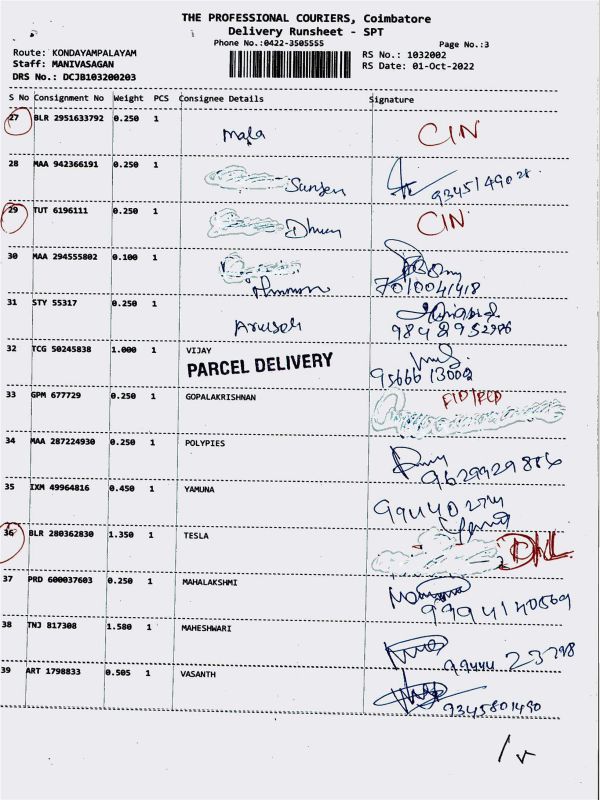 THE PROFESSIONAL COURIERS, Coimbatore
Delivery Runsheet - SPT
Phone No.:0422-3505555
Page No.:3
Route: KONDAYAMPALAYAM
RS No.: 1032002
Staff: MANIVASAGAN
RS Date: 01-Oct-2022
DRS No.: DCJB103200203
S No Consignment No Weight PCS Consignee Details Signature
27 BLR 2951633792 0.250 1 Mala CIN
28 MAA 942366191 0.250 1
29 TUT 6196111 0.250 1 CIN
30 MAA 294555802 0.100 1
7010041418
31 STY 55317 0.250 1
9842952986
32 TCG 50245838 1.000 1 VIJAY
PARCEL DELIVERY
33 GPM 677729 0.250 1 GOPALAKRISHNAN
34 MAA 287224930 0.250 1 POLYPIES
9629929886
35 IXM 49964816 0.450 1 YAMUNA
36 BLR 280362830 1.350 1 TESLA
37 PRD 600037603 0.250 1 MAHALAKSHMI
38 TNJ 817308 1.580 1 MAHESHWARI
39 ART 1798833 0.505 1 VASANTH
9345801490